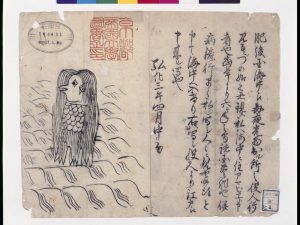 肥後国海中え毎夜光物出ル所之役人行
見るニづの如之者現ス私ハ海中ニ住アマビヱト申
者也当年より六ヶ年之間諸国豊作也併
病流行早々私ヲ写シ人々ニ見セ候得と
申て海中へ入けり右ハ写シ役人より江戸え
申来ル写也
弘化三年四月中旬
京都帝国大学図書之印